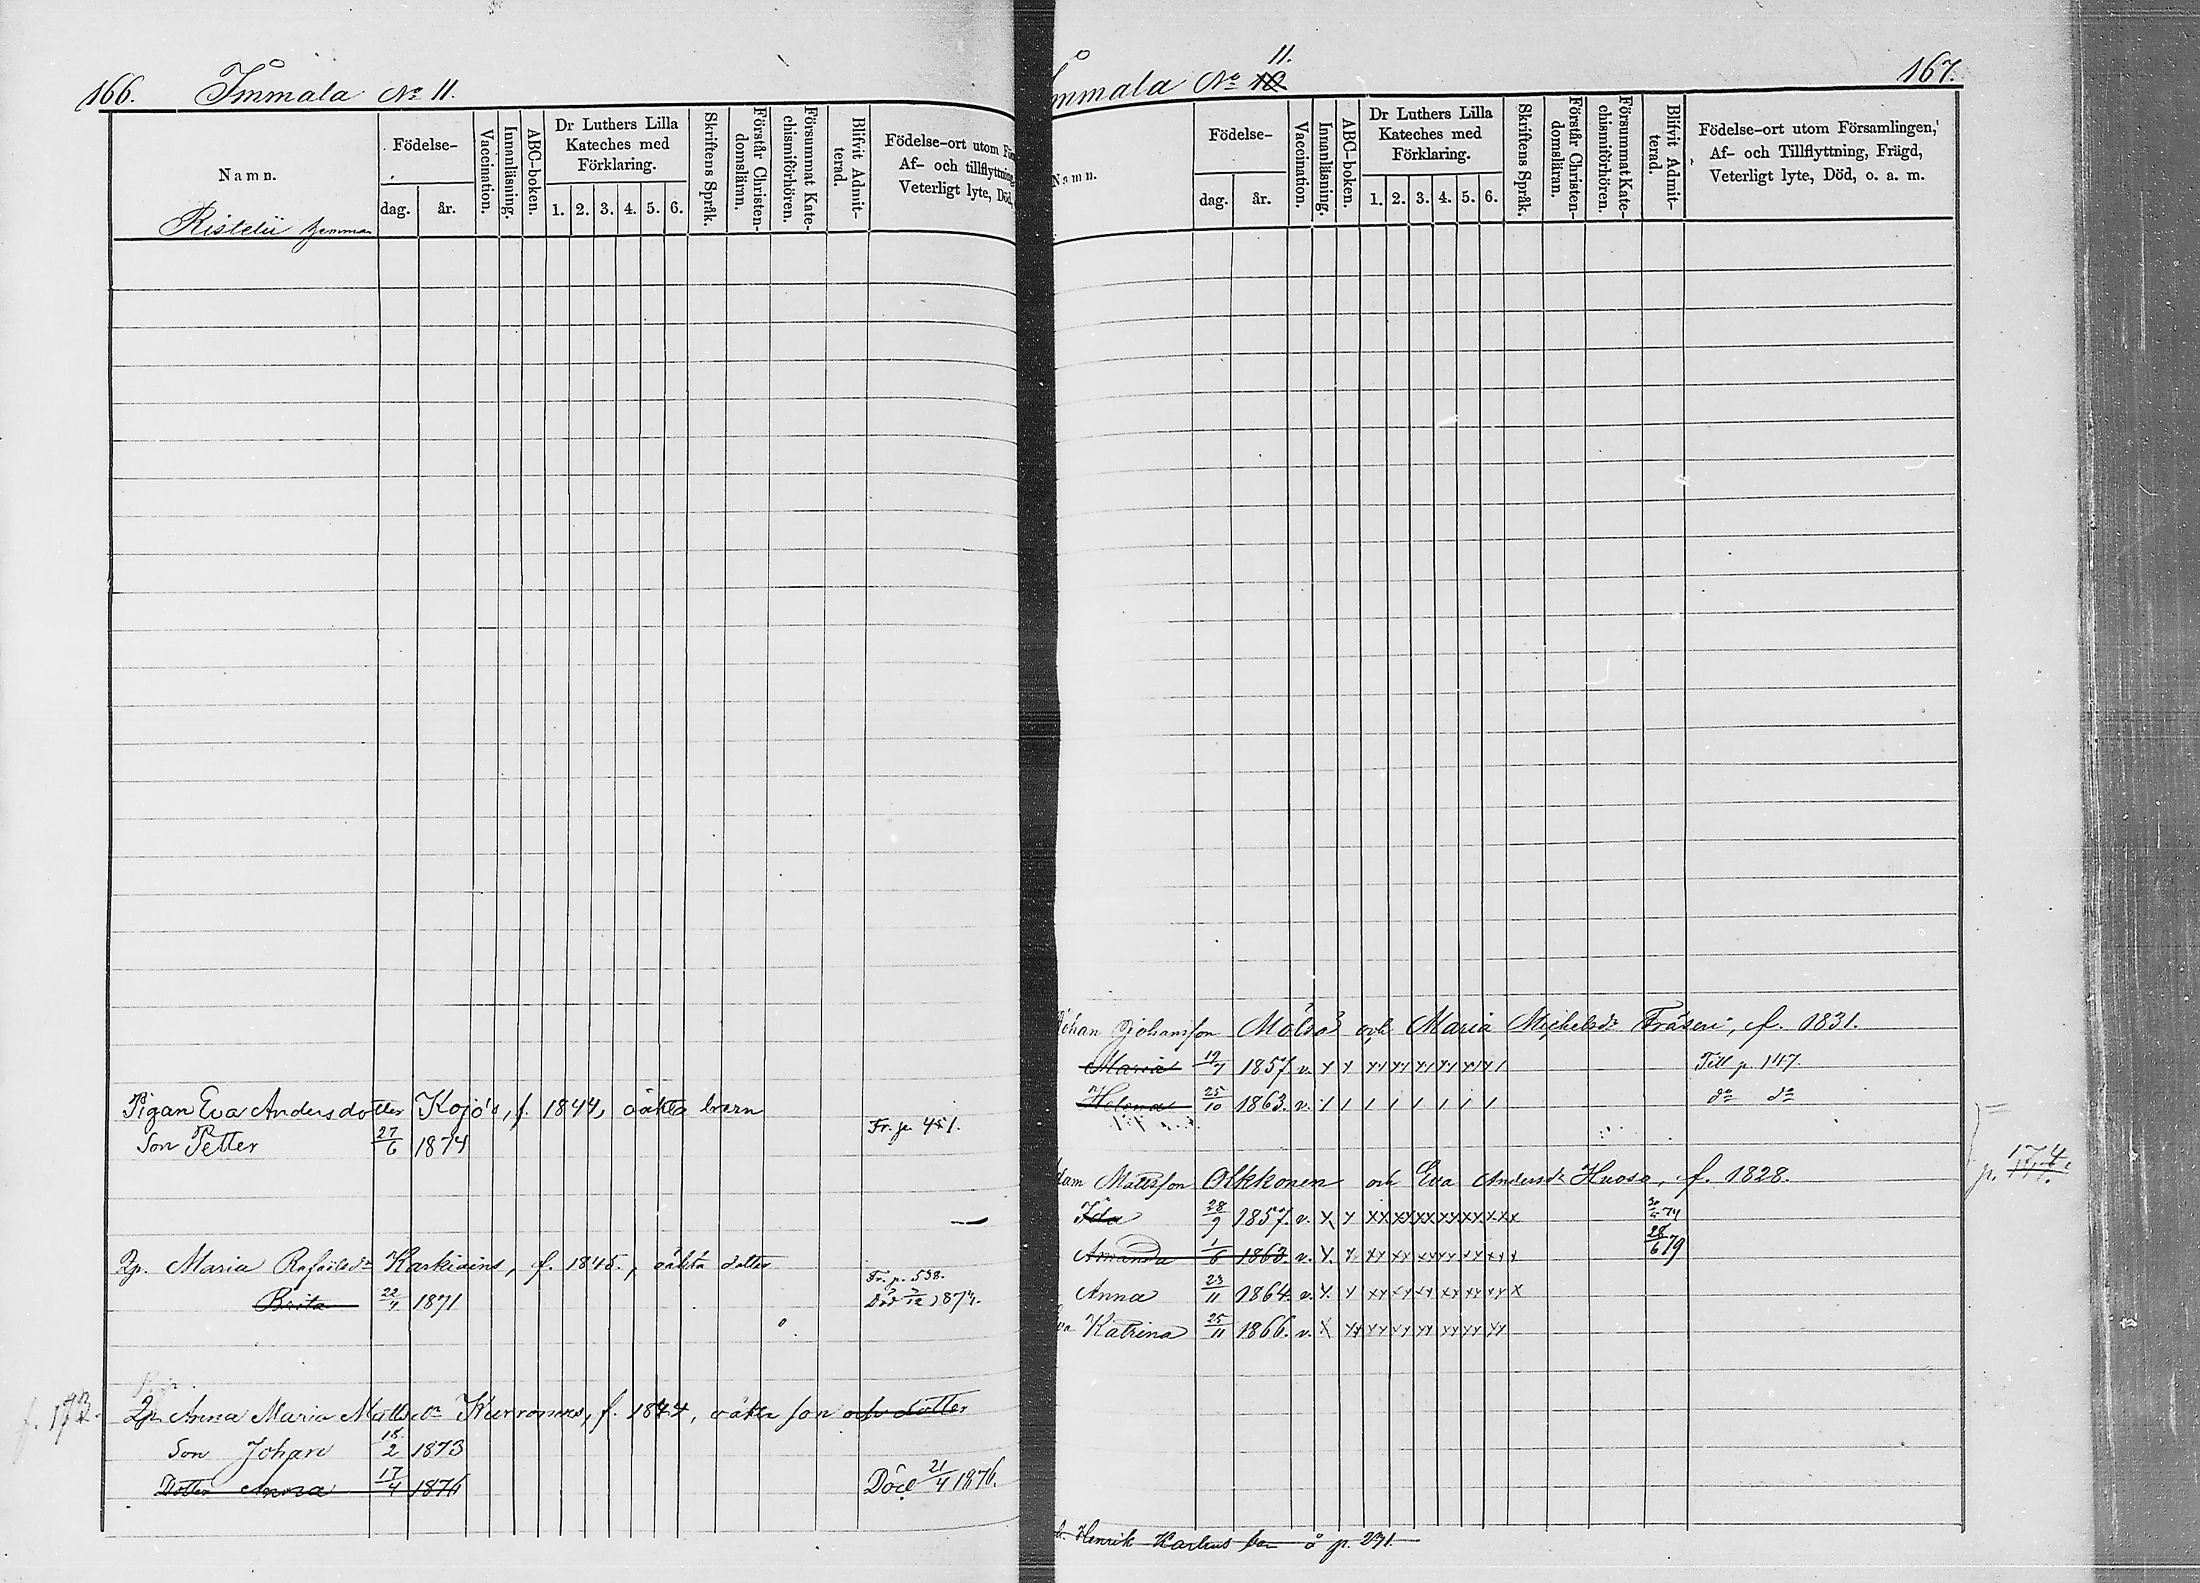 166. Immala No 11.
Namn.
Födelse-
dag.
år.
Vaccination.
Innanläsning.
ABC-boken.
Dr Luthers Lilla
Kateches med
Förklaring.
1. 2. 3. 4. 5. 6.
Skriftens Språk.
Förstår Christen-
domsläran.
Försummat Kate-
chismiförhören.
Blifvit Admit-
terad.
Födelse-ort utom
Af- och tillflyttning
Veterligt lyte, Död,
Ristelii hemman
Pigan Eva Andersdotter Kojo's, f. 1844, oäkta barn
Fr. p. 451.
Son Petter 27/6 1874
Maria Karkiains, f. 1845., oäkta dotter
Fr. p. 538.
Brita 22/4 1871
Anna Maria Kurronens, f. 1844, oäkta son och dotter
Son Johan 18/2 1873
Dotter Anna 17/4 1876 Död 21/4 1876.
mmala No 10 11. 167.
Namn.
Födelse-
dag.
år.
Vaccination.
Innanläsning.
ABC-boken.
Dr Luthers Lilla
Kateches med
Förklaring.
1. 2. 3. 4. 5. 6.
Skriftens Språk.
Förstår Christen-
domsläran.
Försummat Kate-
chismiförhören.
Blifvit Admit-
terad.
Födelse-ort utom Församlingen,
Af- och Tillflyttning, Frägd,
Veterligt lyte, Död, o. a. m.
Johansson Mölsä och Maria Michelsdr f. 1831.
Maria 1857. v. Till p. 147.
Helena 25/10 1863. v. do do
dam Mattsson Olkkonen och Eva Andersdr Huoso, f. 1828.
p. 174.
Ida 28/9 1857. v.
Amanda 1863. v. 28/6 79
Anna 23/11 1864. v.
Katrina 25/11 1866. v.
Henrik p. 271.